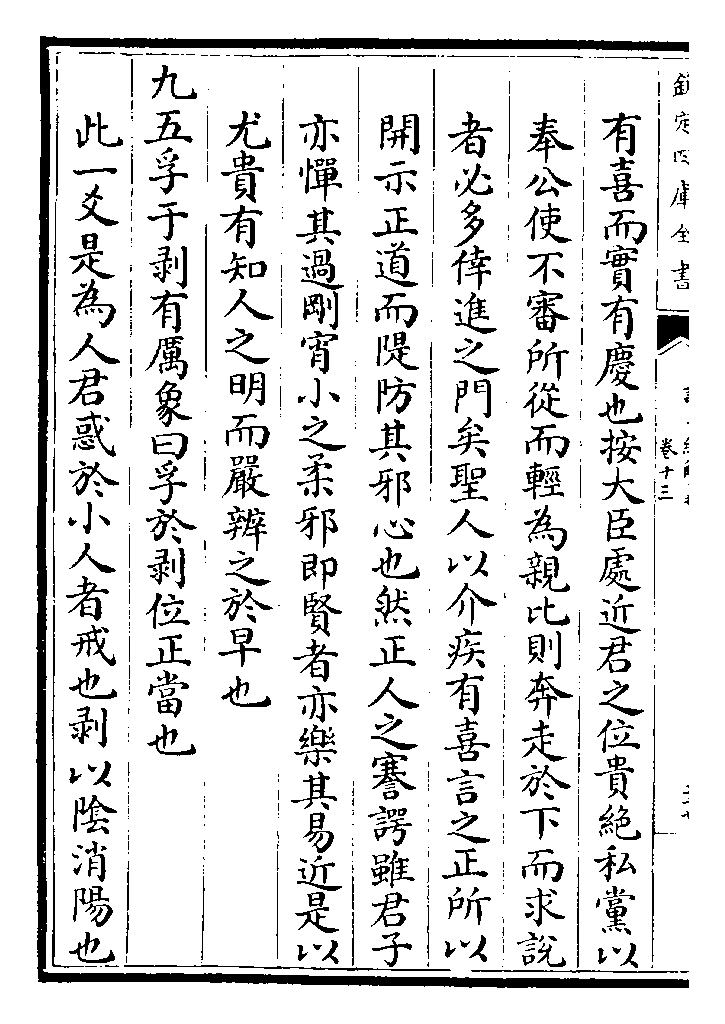 欽定四庫全書
卷十三
有喜而實有慶也按大臣處近君之位貴絶私黨以
奉公使不審所從而輕為親比則奔走於下而求説
者必多倖進之門矣聖人以介疾有喜言之正所以
開示正道而隄防其邪心也然正人之謇諤雖君子
亦憚其過剛宵小之柔邪即賢者亦樂其易近是以
尤貴有知人之明而嚴辨之於早也
九五孚于剥有厲象曰孚於剥位正當也
此一爻是為人君惑於小人者戒也剥以陰消陽也